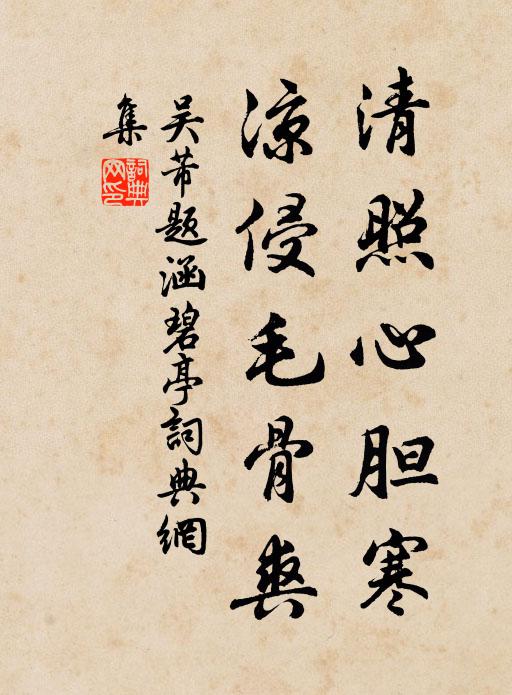 清照心胆寒
凉侵毛骨爽
吴芾题涵碧亭詞典網
集
詞典
网印